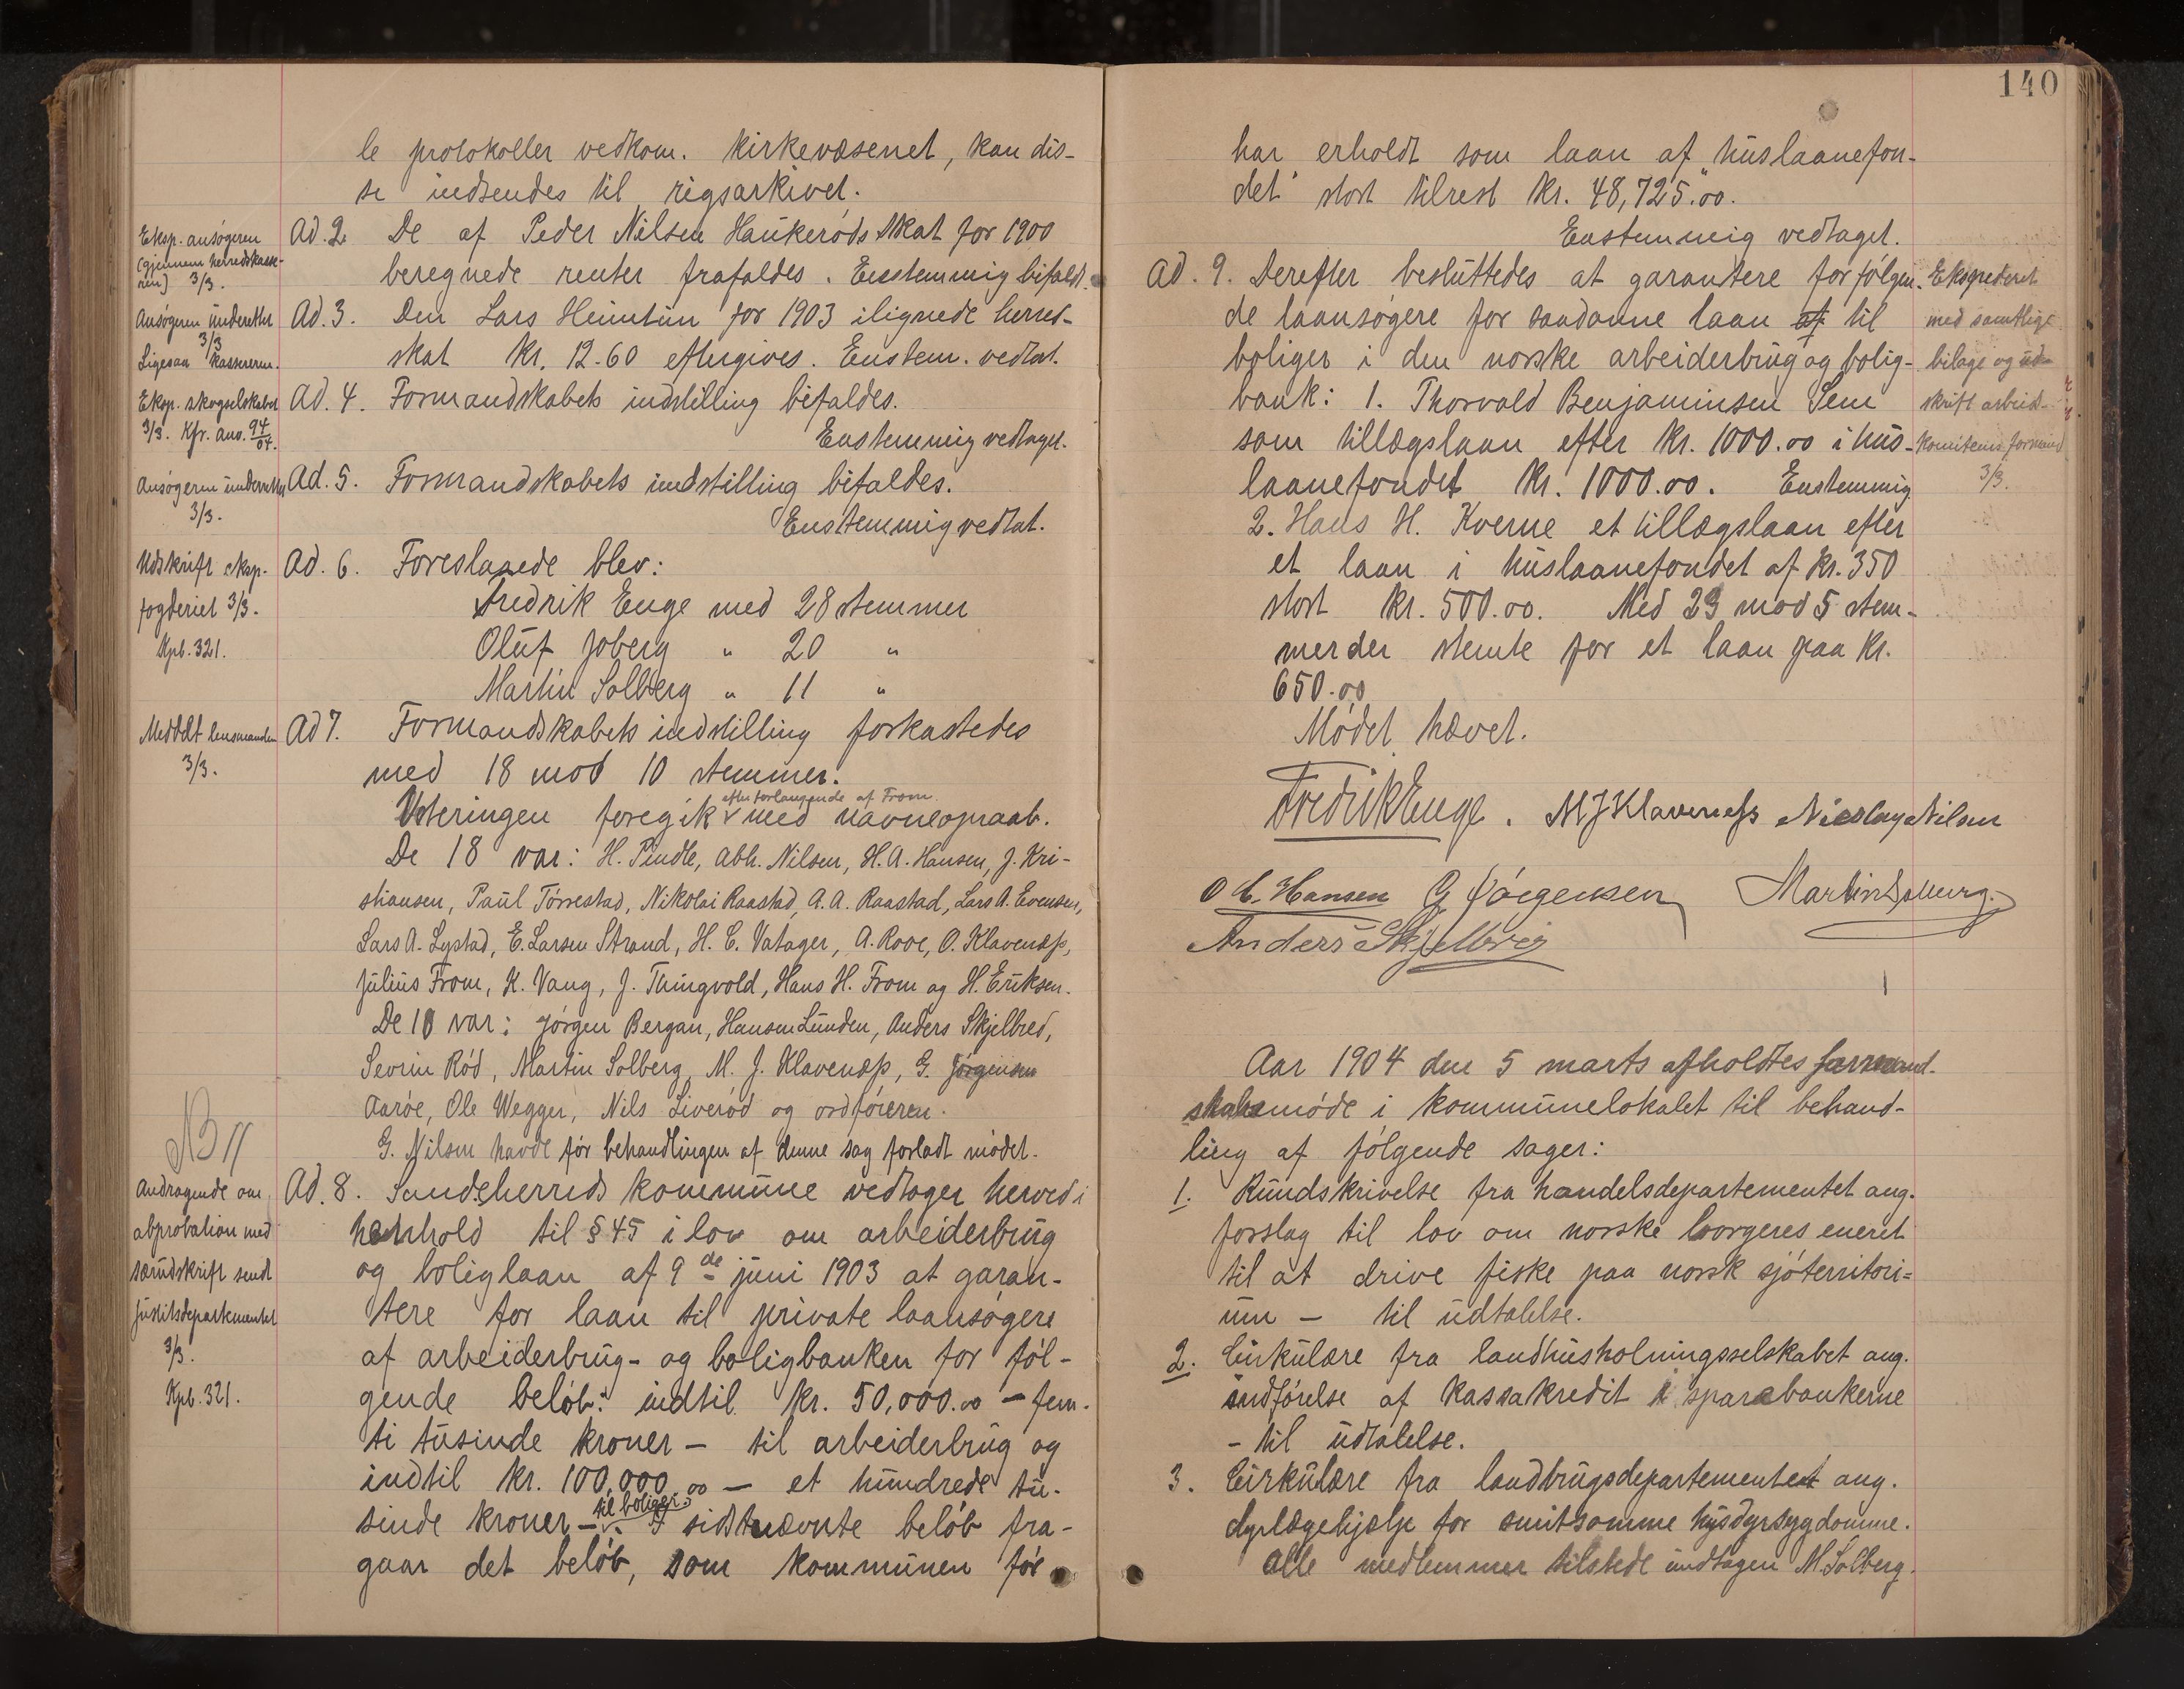 le protokoller vedkom. kirkevæsenet, kan dis-
se indsendes til rigsarkivet.
Eksp. ansøgeren
(gjennem herredskasse-
ren) 3/3.
Ad. 2. De af Peder Nilsen Haukerøds skat for 1900
beregnede renter frafaldes. Enstemmig bifaldt.
Ansøgeren underettet
3/3
Ligesaa kassereren.
Ad. 3. Den Lars Heimtun for 1903 ilignede herred-
skat kr. 12.60 eftergives. Enstem. vedtat.
Eksp. skogselskabet
3/3. Kfr. ano. 94/04.
Ad. 4. Formandskabets indstilling bifaldes.
Enstemmig vedtaget.
Ansøgeren underrettet
3/3.
Ad. 5. Formandskabets indstilling bifaldes.
Enstemmig vedtat.
Udskrift eksp.
fogderiet 3/3.
Kpb. 321.
Ad. 6. Foreslaaede blev:
Fredrik Enge med 28 stemmer
Oluf Joberg " 20 "
Martin Solberg " 11 "
Meddelt lensmanden
3/3.
Ad 7. Formandskabets indstilling forkastedes
med 18 mod 10 stemmer.
efter forlangende af From
Voteringen foregik med navneopraab.
De 18 var: H. Pindle, Abh. Nilsen, H. A. Hansen, J. Kri-
stiansen, Paul Tørrestad, Nikolai Raastad, A. A. Raastad, Lars A. Evensen,
Lars A. Lystad, E. Larsen Strand, H. C. Vatager, A. Rove, O. Klavenæss,
Julius From, K. Vang, J. Thingvold, Hans H. From og H. Eriksen.
De 10 var: Jørgen Bergan, Hansen Lunden, Anders Skjelbred,
Sevrin Rød, Martin Solberg, M. J. Klavenæss, G. Jørgensen
Aarøe, Ole Wegger, Nils Liverød og ordføreren.
G. Nilsen havde før behandlingen af denne sag forladt mødet.
NB
Andragende om
abprobation med
særudskrift sendt
justitsdepartementet
3/3.
Kpb. 321.
Ad. 8. Sandeherreds kommune vedtager herved i
henhold til § 45 i lov om arbeiderbrug
og boliglaan af 9de juni 1903 at garan-
tere for laan til private laansøgere
af arbeiderbrug- og boligbanken for føl-
gende beløb: indtil kr. 50,000.00 - fem-
ti tusinde kroner - til arbeiderbrug og
indtil kr. 100,000.00 - et hundrede tu-
til boliger.
sinde kroner -. I sidstnævnte beløb fra-
gaar det beløb, som kommunen før
140
har erholdt som laan af "huslaanefon-
det" stort tilrest kr. 48,725.00.
Enstemmig vedtaget.
Ad. 9. Derefter besluttedes at garantere for følgen-
de laansøgere for saadanne laan af til
boliger i den norske arbeiderbrug og bolig-
bank: 1. Thorvald Benjaminsen Sem
som tillægslaan efter kr. 1000.00 i hus-
laanefondet kr. 1000.00. Enstemmig
2. Hans H. Kverne et tillægslaan efter
et laan i huslaanefondet af kr. 350
stort kr. 500.00. Med 23 mod 5 stem-
mer der stemte for et laan paa kr.
650.00
Ekspederet
med samtlige
bilage og ud-
skrift arbeid-
komiteens formand
3/3.
Mødet hævet.
Fredrik Enge. M J Klaveness Nicolay Nilsen
O C. Hansen G Jørgensen Martin Solberg.
Anders Skjelbred
Aar 1904 den 5 marts afholdtes formand-
skabsmøde i kommunelokalet til behand-
ling af følgende sager:
1. Rundskrivelse fra handelsdepartementet ang.
forslag til lov om norske borgeres eneret
til at drive fiske paa norsk sjøterritori-
um - til udtalelse.
2. Cirkulære fra landhusholningsselskabet ang.
indførelse af kassakredit i sparebankerne
- til udtalelse.
3. Cirkulære fra landbrugsdepartementet ang.
dyrlægehjælp for smitsomme husdyrsygdomme.
Alle medlemmer tilstede undtagen M. Solberg.